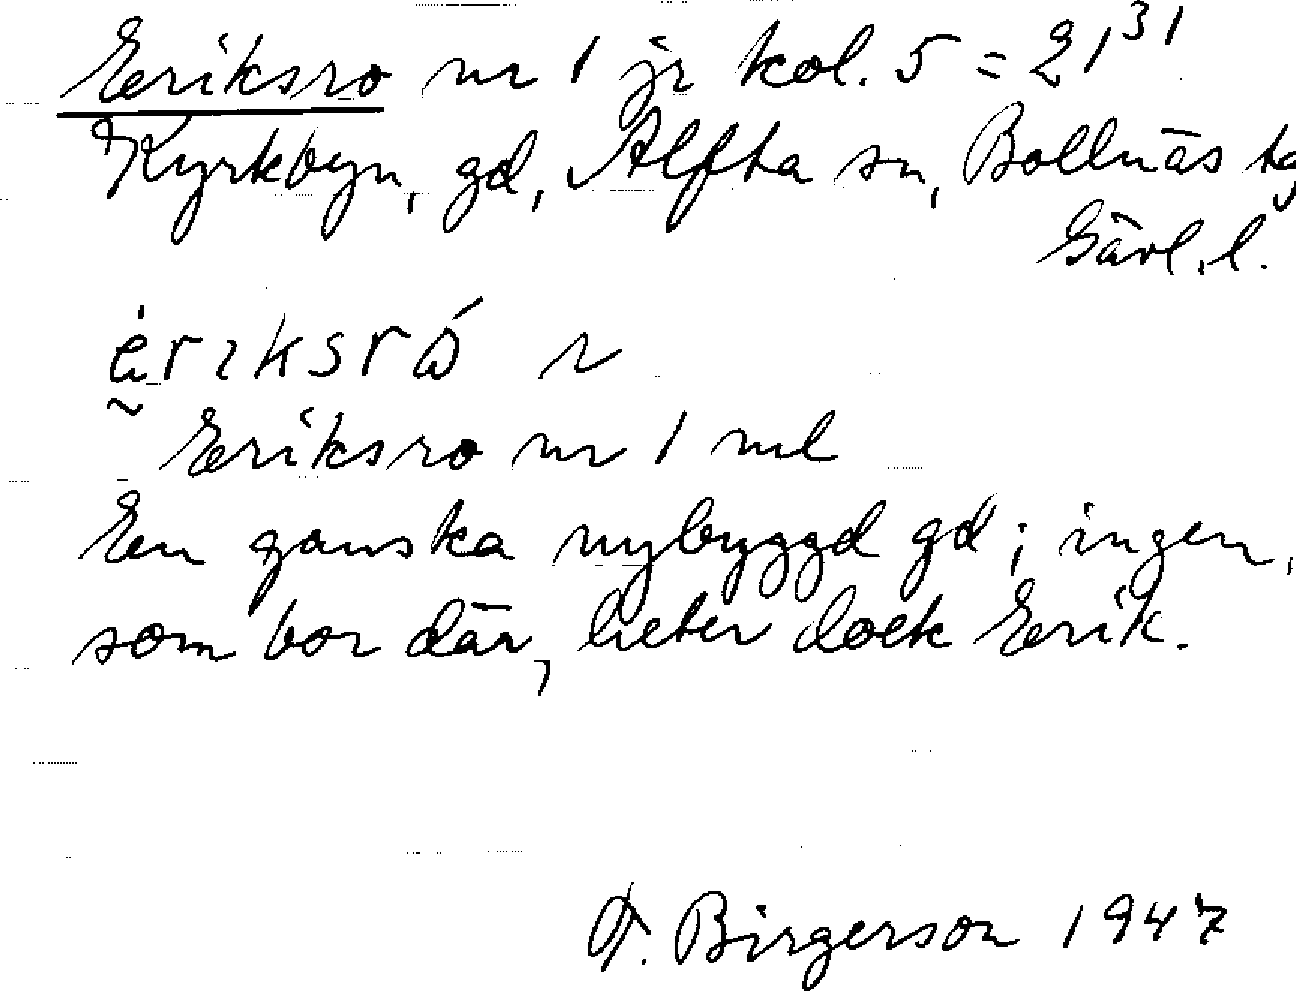 Eriksro nr 1 jr kol. 5 = 21³¹
Kyrkbyn, gd, Alfta sn, Bollnäs tg
Gävl. l.
Eriksro nr 1 ml
En ganska nybyggd gd; ingen,
som bor där, heter dock Erik.
Birgerson 1947